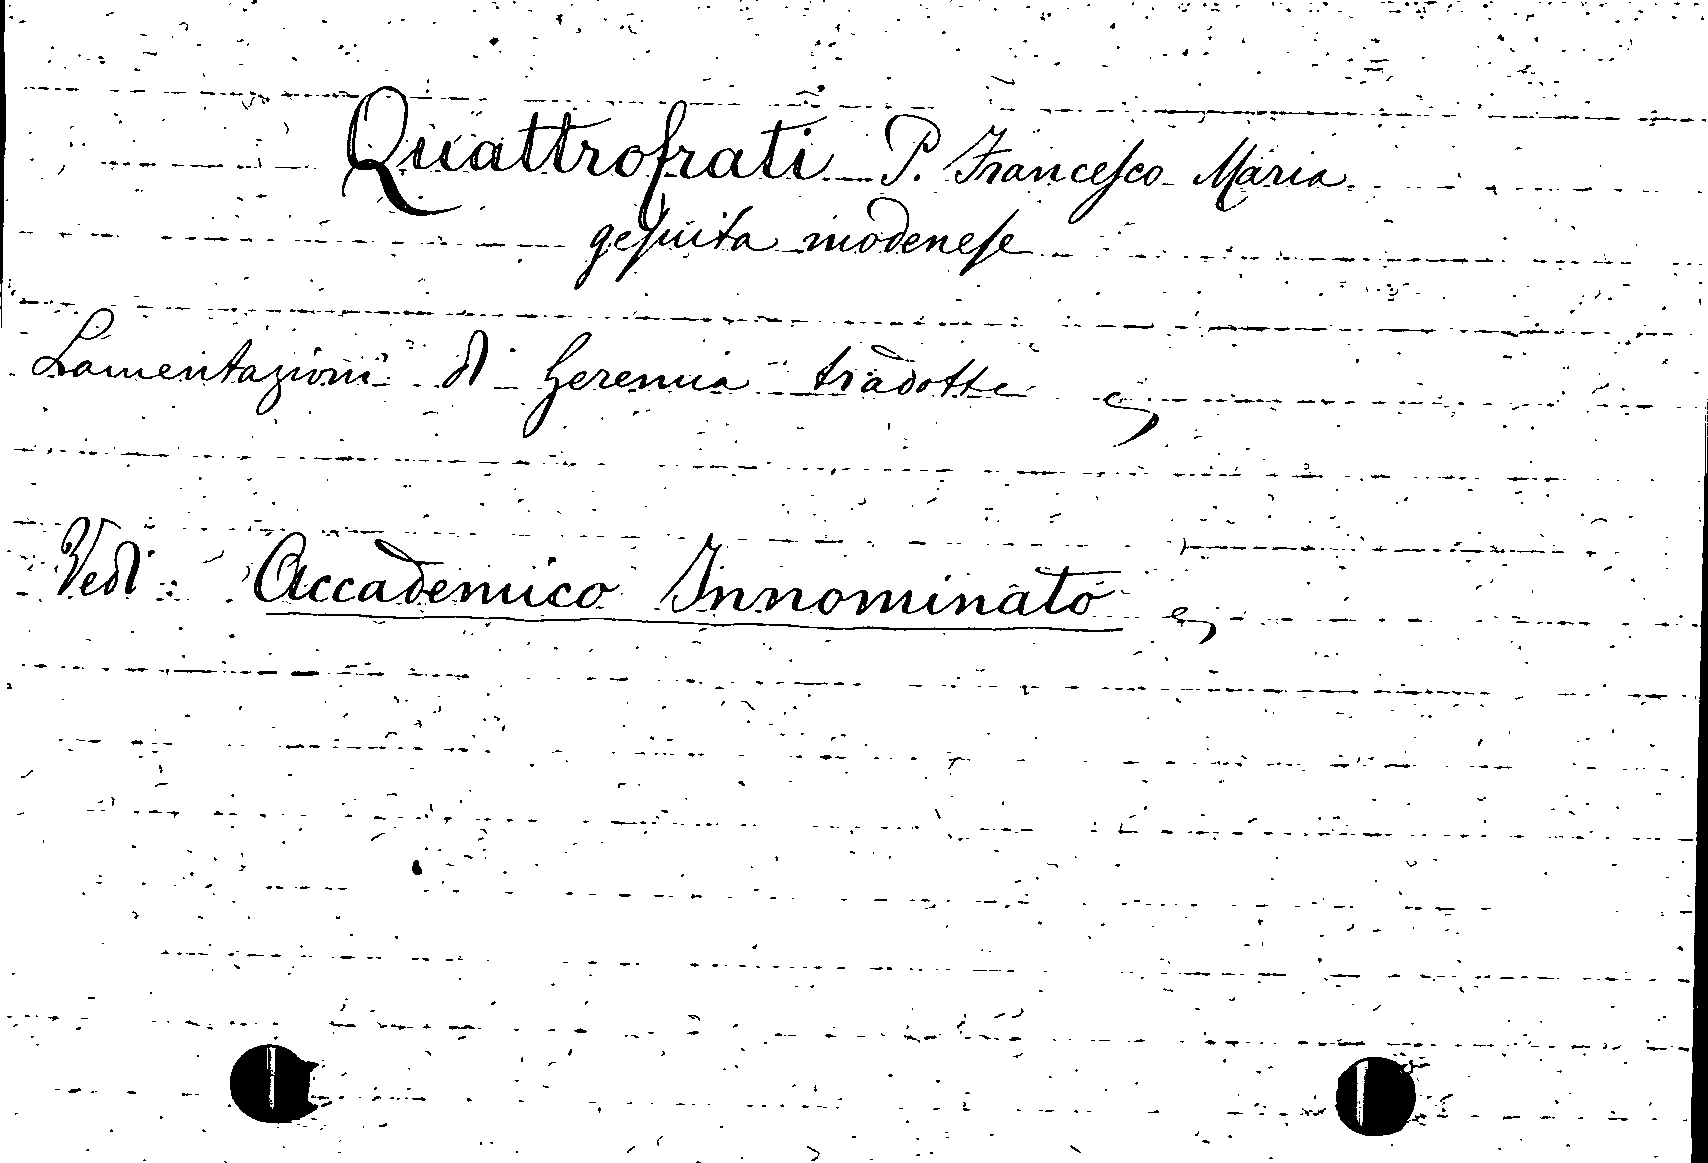 Quattrofrati P. Francesco Maria
gesuita modenese
Lamentazioni di Geremia tradotte
Vedi: Accademico Innominato